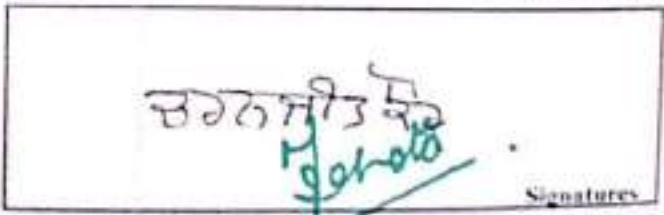 ਚਰਨਜੀਤ ਕੌਰ
Signatures